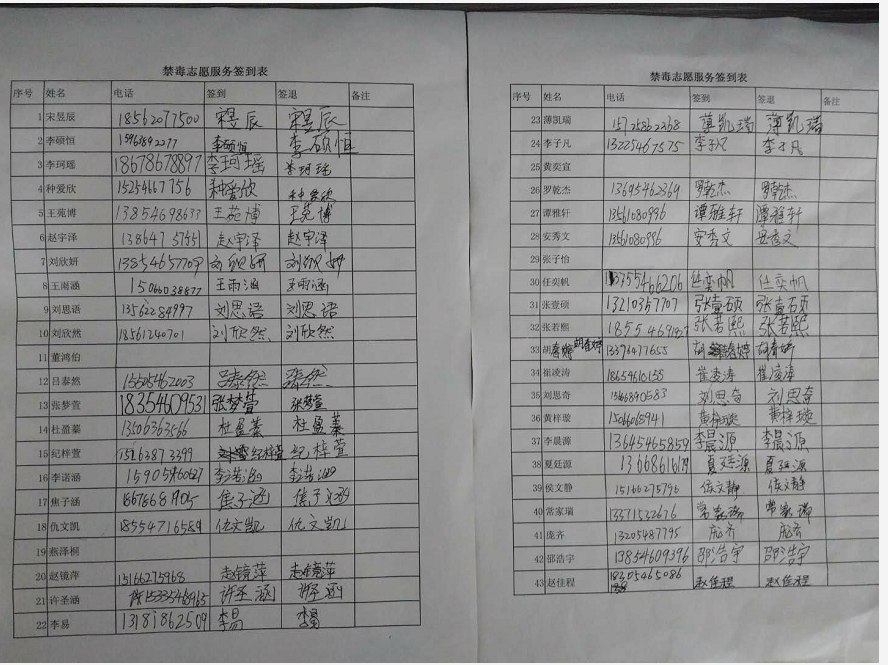 禁毒志愿服务签到表
序号 姓名 电话 签到 签退 备注
1 宋昱辰 18562077500 宋昱辰 宋昱辰
2 李硕恒 李硕恒 李硕恒
3 李珂瑶 18678678897 李珂瑶 李珂瑶
4 种爱欣 15254667756 种爱欣 种爱欣
5 王苑博 13854698633 王苑博 王苑博
6 赵宇泽 赵宇泽 赵宇泽
7 刘欣妍 刘欣妍 刘欣妍
8 王雨涵 15066038877 王雨涵 王雨涵
9 刘思语 13562284997 刘思语 刘思语
10 刘欣然 18561240701 刘欣然 刘欣然
11 董鸿伯
12 吕泰然 15505462003 吕泰然
13 张梦萱 18354609531 张梦萱 张梦萱
14 杜盈蓁 13506363566 杜盈蓁 杜盈蓁
15 纪梓萱 15263873399 纪梓萱 纪梓萱
16 李诺涵 李诺涵 李诺涵
17 焦子涵 焦子涵 焦子涵
18 仇文凯 18554716584 仇文凯 仇文凯
19 燕泽桐
20 赵镜萍 15166275968 赵镜萍 赵镜萍
21 许圣涵 许圣涵 许圣涵
22 李易 13181862509 李易 李易
禁毒志愿服务签到表
序号 姓名 电话 签到 签退 备注
23 薄凯瑞 15725862268 薄凯瑞 薄凯瑞
24 李子凡 13225467575 李子凡 李子凡
25 黄奕宣
26 罗乾杰 13695462369 罗乾杰 罗乾杰
27 谭雅轩 13561080996 谭雅轩 谭雅轩
28 安秀文 13561080996 安秀文 安秀文
29 张子怡
30 任奕帆 13355466206 任奕帆 任奕帆
31 张壹硕 13210357707 张壹硕 张壹硕
32 张若熙 张若熙 张若熙
33 胡 13396477655
34 崔凌涛 18654610155 崔凌涛 崔凌涛
35 刘思奇 15666890583 刘思奇 刘思奇
36 黄梓璇 15066068941 黄梓璇 黄梓璇
37 李晨源 13645465859 李晨源 李晨源
38 夏廷源 夏廷源 夏廷源
39 侯文静 15166275796 侯文静 侯文静
40 常家瑞 13371532676 常家瑞 常家瑞
41 庞齐 13205487795 庞齐 庞齐
42 邵浩宇 13854609396 邵浩宇 邵浩宇
43 赵佳程 18305465086 赵佳程 赵佳程